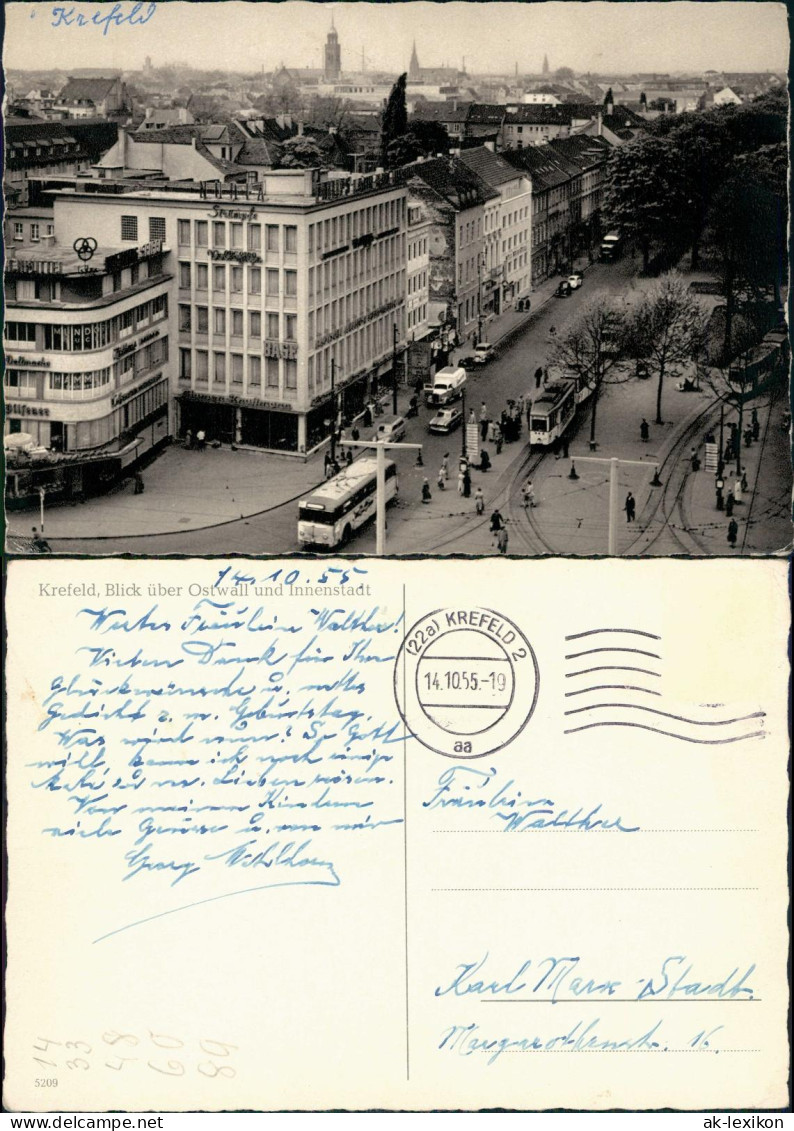 Krefeld
Strümpfe
HAGE
Krefeld, Blick über Ostwall und Innenstadt
14.10.55
Wertes Fräulein Walther!
Vielen Dank für Ihre
Glückwünsche u. nettes
Gedicht z. m. Geburtstag.
Was wird nun? So Gott
will, kann ich noch einige
male zu m. Lieben reisen.
Von meinen Kindern
viele Grüsse u. von mir
Georg
(22a) KREFELD 2
14.10.55.-19
aa
Fräulein
Walther
Karl Marx-Stadt.
Margarethenstr. 16.
14
33
48
60
89
5209
www.ak-ansichtskarten.de
ak-lexikon